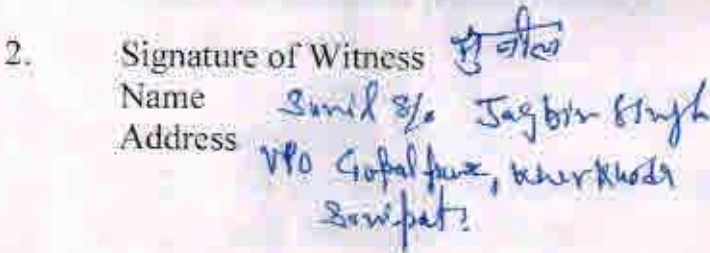 2. Signature of Witness सुनील
Name Sunil S/o Jagbir Singh
Address VPO Gopalpur, Kharkhoda
Sonipat.